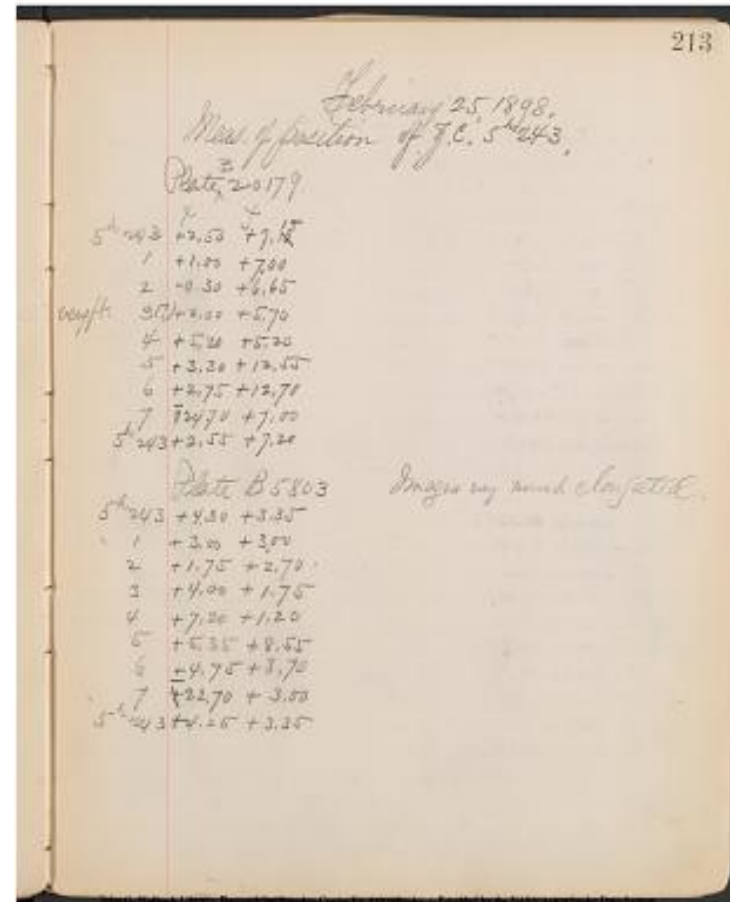 213
February 25, 1898.
Meas. of position of Z.C. 5h 243.
Plate B 20179
x y
5h 243 +2.50 +7.15
1 +1.00 +7.00
2 -0.30 +6.65
3 +2.00 +5.70
4 +5.20 +5.20
5 +3.30 +12.55
6 +2.75 +12.70
7 -24.70 +7.00
5h 243 +2.55 +7.20
Plate B 5803 Images very much elongated.
5h 243 +4.30 +3.35
1 +3.00 +3.00
2 +1.75 +2.70
3 +4.00 +1.75
4 +7.20 +1.20
5 +5.35 +8.55
6 +4.75 +8.70
7 -22.70 +3.00
5h 243 +4.25 +3.35